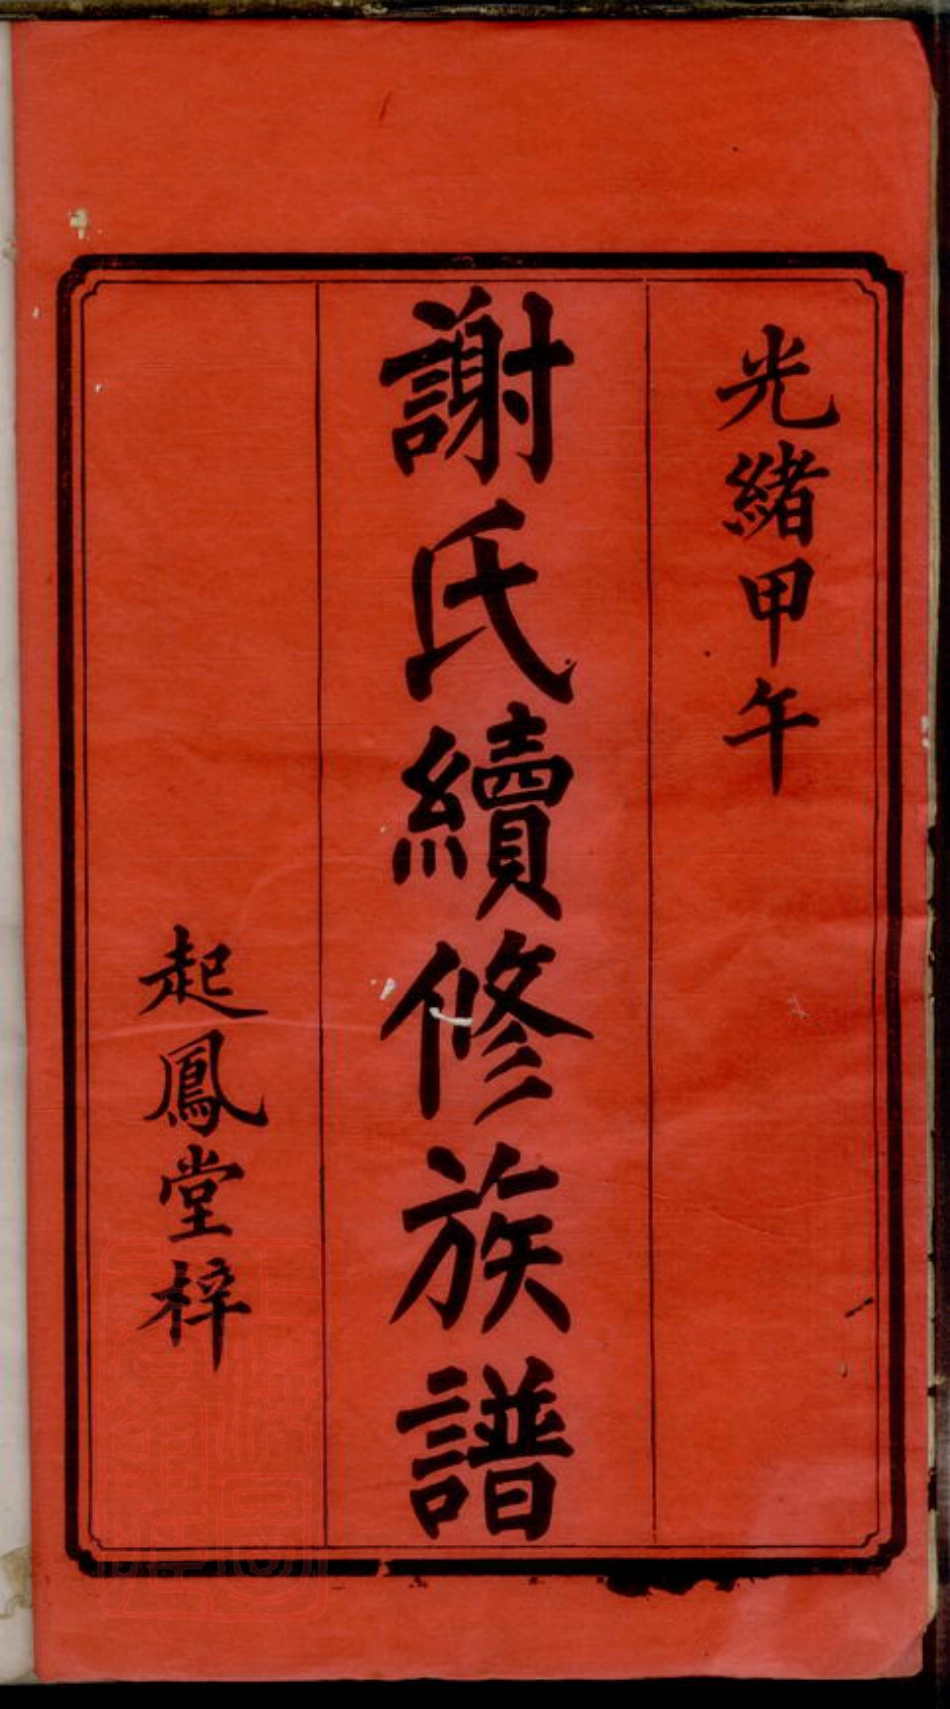 光緒甲午
謝氏續修族譜
起鳳堂梓